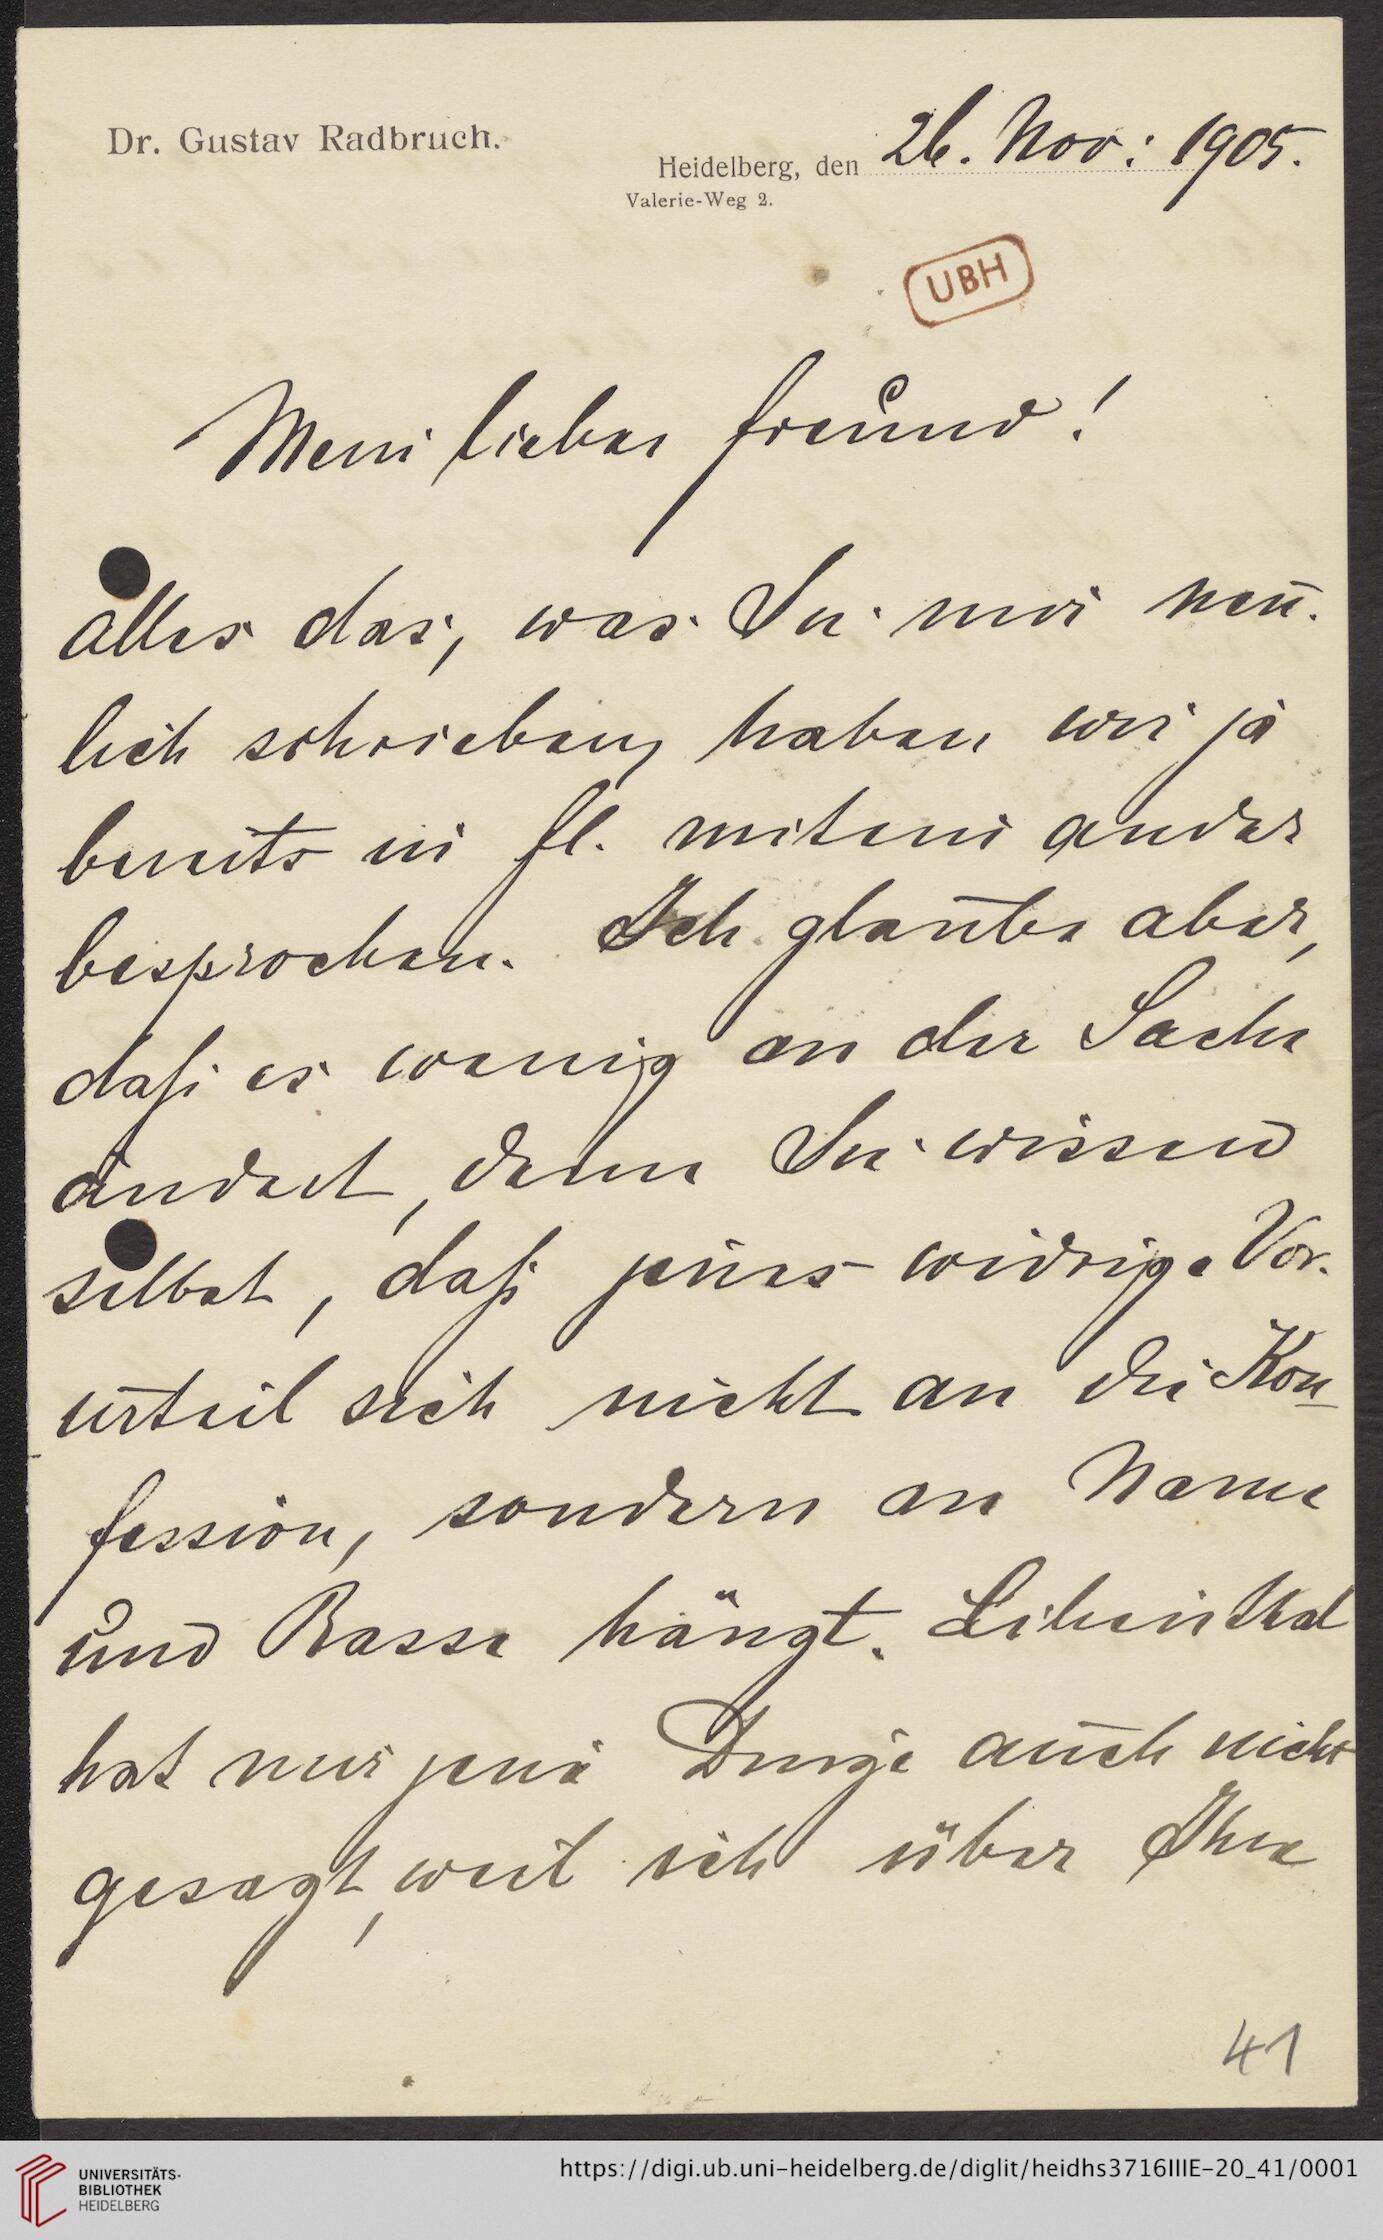 Dr. Gustav Radbruch.
Heidelberg, den 26. Nov: 1905.
Valerie-Weg 2.
UBH
Mein lieber Freund!
alles das, was Sie mir neu-
lich schrieben, haben wir ja
bereits in Hl. miteinander
besprochen. Ich glaube aber,
daß es wenig an der Sache
ändert, denn Sie wissen
selbst, daß jenes widrige Vor-
urteil sich nicht an die Kon-
fession, sondern an Name
und Rasse hängt. Lilienthal
hat mir jene Dinge auch nicht
gesagt, weil ich über Ihre
41
UNIVERSITÄTS-
BIBLIOTHEK
HEIDELBERG
https://digi.ub.uni-heidelberg.de/diglit/heidhs3716IIIE-20_41/0001